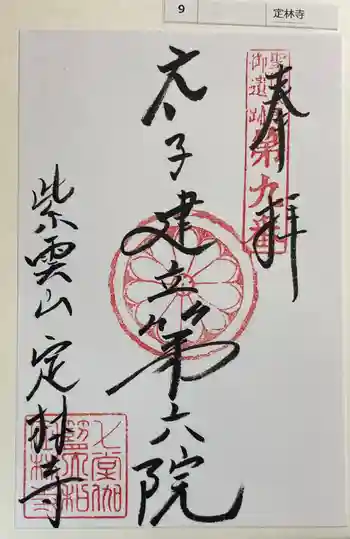 9
定林寺
奉拝
聖
御遺跡
第九番
太子建立第六院
紫雲山 定林寺
七堂伽